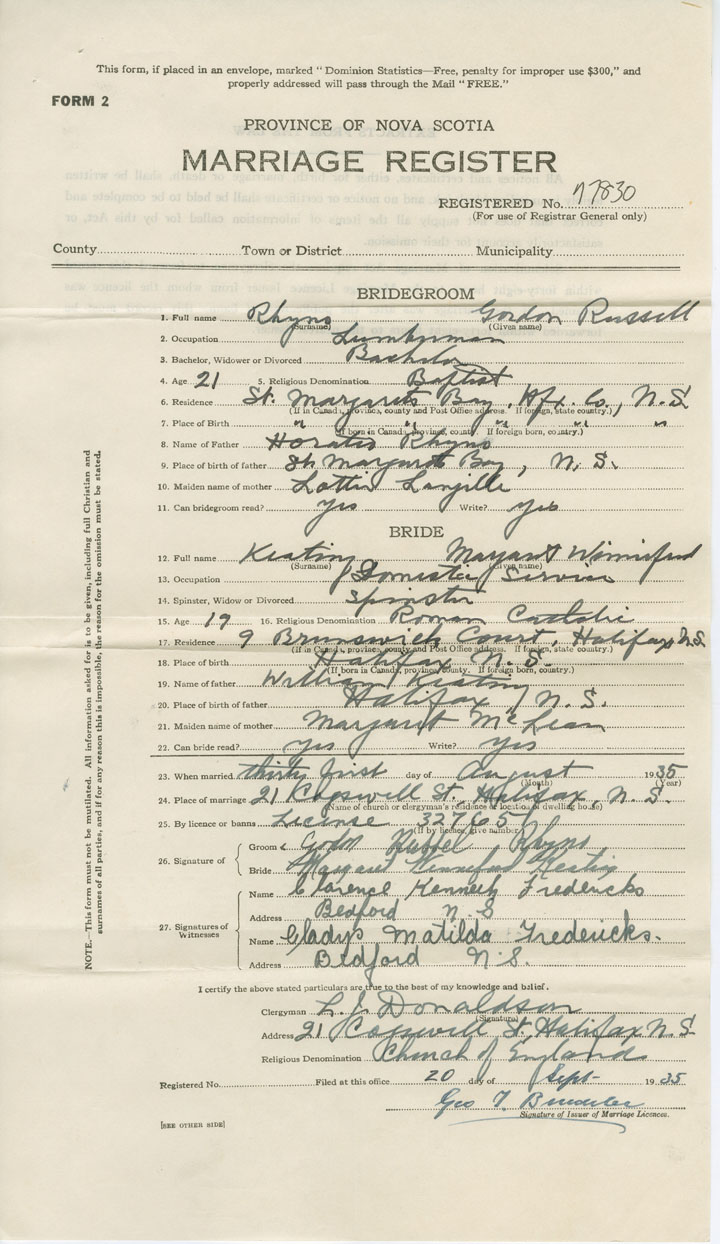 This form, if placed in an envelope, marked "Dominion Statistics—Free, penalty for improper use $300," and
properly addressed will pass through the Mail "FREE."
FORM 2
PROVINCE OF NOVA SCOTIA
MARRIAGE REGISTER
REGISTERED No. 77830
(For use of Registrar General only)
County Town or District Municipality
BRIDEGROOM
1. Full name Rhyno Gordon Russell
(Surname) (Given name)
2. Occupation Lumberman
3. Bachelor, Widower or Divorced Bachelor
4. Age 21 5. Religious Denomination Baptist
6. Residence St. Margarets Bay, Hfx. Co., N.S.
(If in Canada, province, county and Post Office address. If foreign, state country.)
7. Place of Birth " " " " "
(If born in Canada, province, county. If foreign born, country.)
8. Name of Father Horatio Rhyno
9. Place of birth of father St. Margarets Bay, N.S.
10. Maiden name of mother Lottie Langille
11. Can bridegroom read? yes Write? yes
BRIDE
12. Full name Keating Margaret Winnifred
(Surname) (Given name)
13. Occupation Domestic Service
14. Spinster, Widow or Divorced Spinster
15. Age 19 16. Religious Denomination Roman Catholic
17. Residence 9 Brunswick Court, Halifax N.S.
(If in Canada, province, county and Post Office address. If foreign, state country.)
18. Place of birth Halifax N.S.
(If born in Canada, province, county. If foreign born, country.)
19. Name of father William Keating
20. Place of birth of father Halifax, N.S.
21. Maiden name of mother Margaret McLean
22. Can bride read? Yes Write? Yes
23. When married thirty first day of August 1935
(Month) (Year)
24. Place of marriage 21 Cogswell St. Halifax, N.S.
(Name of church or clergyman's residence or location of dwelling house)
25. By licence or banns License 32765
(If by licence, give number)
26. Signature of
Groom Gordon Russel Rhyno
Bride Margaret Winneford Keating
27. Signatures of Witnesses
Name Clarence Kenneth Fredericks
Address Bedford N.S
Name Gladys Matilda Fredericks.
Address Bedford N.S.
I certify the above stated particulars are true to the best of my knowledge and belief.
Clergyman L. J. Donaldson
(Signature)
Address 21 Cogswell St, Halifax N.S
Religious Denomination Church of England
Registered No. Filed at this office 20 day of Sept- 1935
Geo T.
Signature of Issuer of Marriage Licences.
[SEE OTHER SIDE]
NOTE.—This form must not be mutilated. All information asked for is to be given, including full Christian and
surnames of all parties, and if for any reason this is impossible, the reason for the omission must be stated.